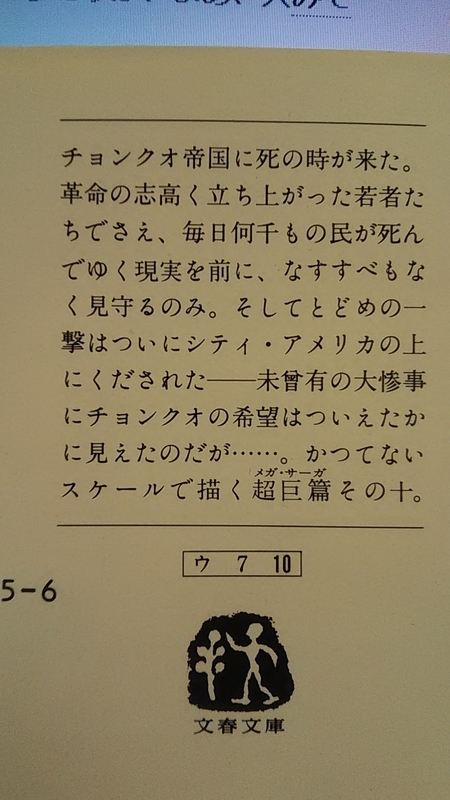 チョンクオ帝国に死の時が来た。
革命の志高く立ち上がった若者た
ちでさえ、毎日何千もの民が死ん
でゆく現実を前に、なすすべもな
く見守るのみ。そしてとどめの一
撃はついにシティ・アメリカの上
にくだされた──未曾有の大惨事
にチョンクオの希望はついえたか
に見えたのだが……。かつてない
メガ・サーガ
スケールで描く超巨篇その十。
ウ 7 10
5-6
文春文庫